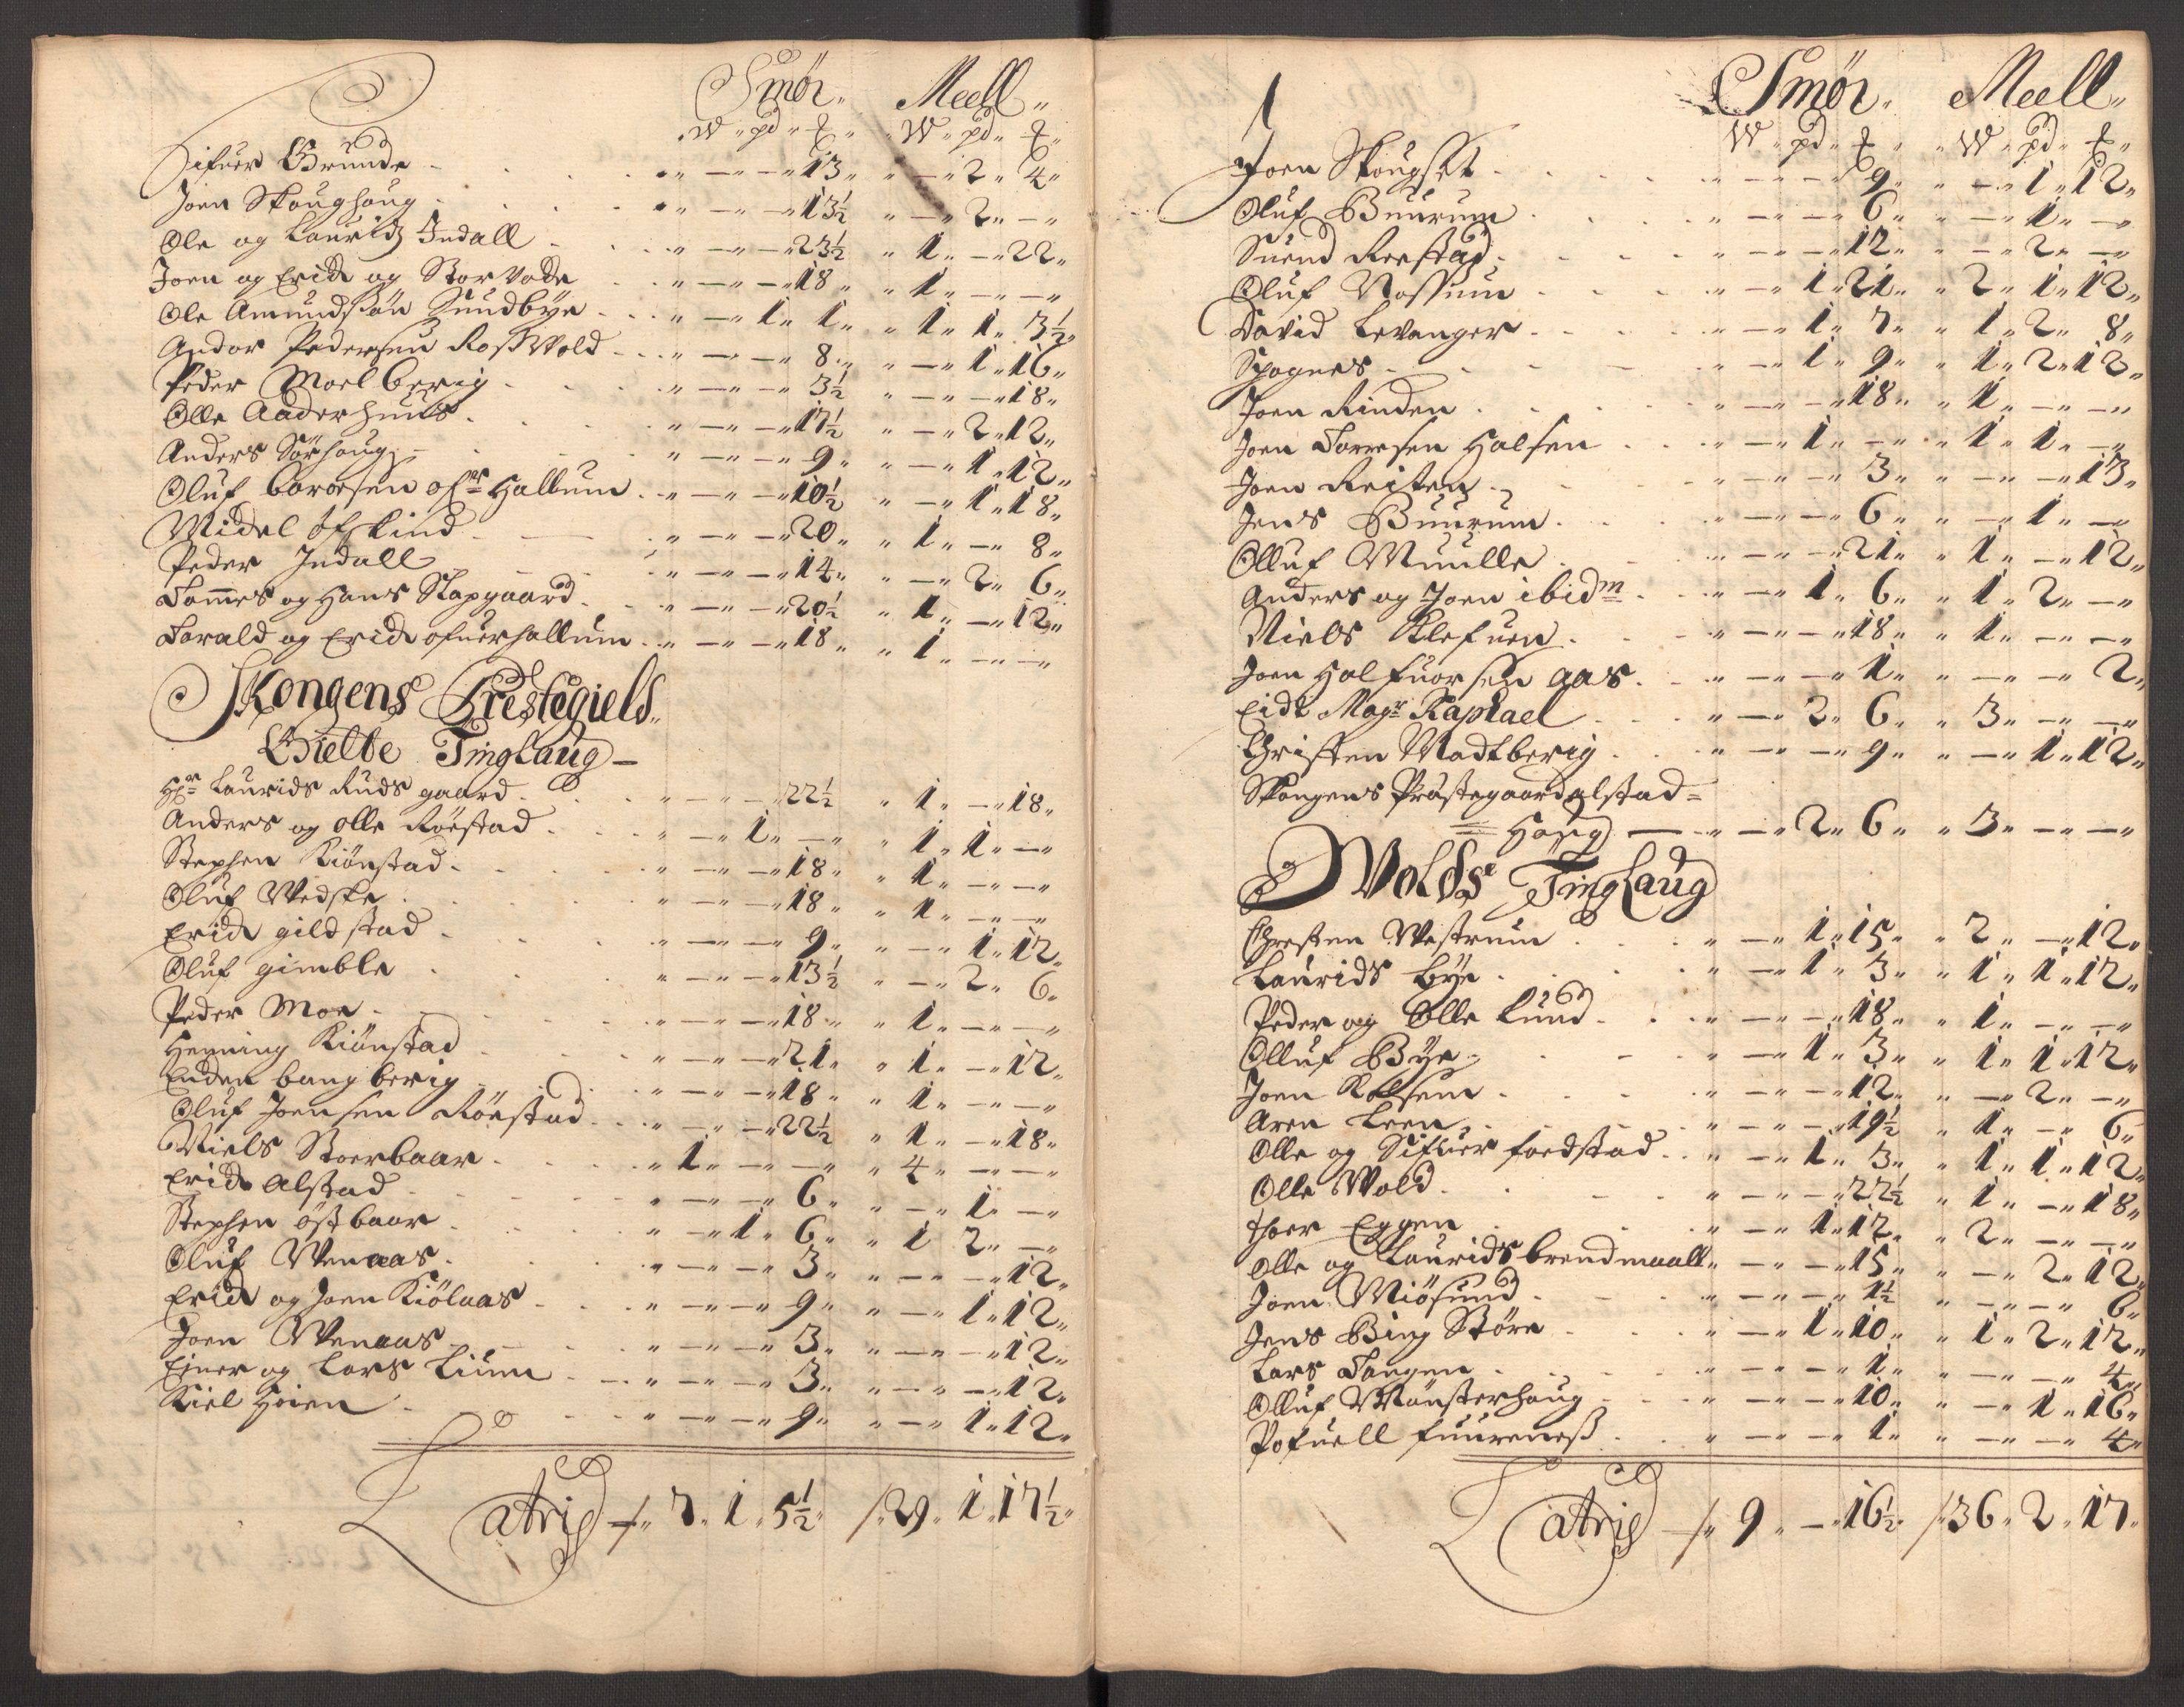 Smör„ Meell„
W„ pd„ ℔„ W„ pd„ ℔„
Sifuer Grunde „ — — 13„ „ — 2„ 4„
Joen Skoughoug „ — — 13½ „ — 2„ —
Ole og Lauridz Indall „ — — 23½ „ 1„ — 22„
Joen og Erich og Storvade „ — — 18„ „ 1„ — —
Ole Amundsøn Sundbÿe „ — 1„ 1„ „ 1„ 1„ 3½„
Andor Pedersen Roswold „ — — 8„ „ — 1„ 16„
Peder Moelberig „ — — 3½ „ — — 18„
Olle Aaderhuus „ — — 17½ „ — 2„ 12„
Anders Sørhoug „ — — 9„ „ — 1„ 12„
Oluf Corersen ofr Hallum „ — — 10½ „ — 1„ 18„
Midel Østkind „ — — 20„ „ 1„ — 8„
Peder Indall „ — — 14„ „ — 2„ 6„
Tommes og Hans Slapgaard „ — — 20½ „ 1„ — 12„
Torald og Erich ofuerhallum „ — — 18„ „ 1„ — —
Skongens Prestegield„
Gielte Tinglaug —
Hr Laurids Ruds gaard „ — — 22½ „ 1„ — 18„
Anders og Olle Röestad „ — 1„ — „ 1„ 1„ —
Stephen Kiönstad „ — — 18„ „ 1„ — —
Oluf Wedske „ — — 18„ „ 1„ — —
Erich gildstad „ — — 9„ „ — 1„ 12„
Oluf gimble „ — — 13½ „ — 2„ 6„
Peder Moe „ — — 18„ „ 1„ — —
Henning Kiönstad „ — — 21„ „ 1„ — 12„
Enden bangberig „ — — 18„ „ 1„ — —
Oluf Joensen Röestad „ — — 22½ „ 1„ — 18„
Niels Storbaar „ 1„ — — „ 4„ — —
Erich Alstad „ — — 6„ „ — 1„ —
Stephen östbaar „ — 1„ 6„ „ 1 2„ —
Oluf Wenaas „ — — 3„ „ — — 12„
Erich og Joen Kiölaas „ — — 9„ „ — 1„ 12„
Joen Wenaas „ — — 3„ „ — — 12„
Ejner og Lars Lium „ — — 3„ „ — — 12„
Kiel Hoien „ — — 9„ „ — 1„ 12„
Latris /„ 7„ 1„ 5½„ /„ 29„ 1„ 17½„
Smör„ Meell„
W„ pd„ ℔„ W„ pd„ ℔„
Joen Skougset „ — — 9„ „ — 1„ 12„
Oluf Buurum „ — — 6„ „ — 1„ —
Suend Reestad „ — — 12„ „ — 2„ —
Oluf Nossum „ — 1„ 21„ „ 2„ 1„ 12„
David Levanger „ — 1„ 7„ „ 1„ 2„ 8„
Spognes „ — 1„ 9„ „ 1„ 2„ 13„
Joen Rinden „ — — 18„ „ 1„ — —
Joen Torresen Halsen „ — 1„ — „ 1„ 1„ —
Joen Reiten „ — — 3„ „ — — 13„
Jens Buurum „ — — 6„ „ — 1„ —
Olluf Muulle „ — — 21„ „ 1„ — 12„
Anders og Joen ibidm „ — 1„ 6„ „ 1„ 2„ —
Niels Klefuen „ — — 18„ „ 1„ — —
Joen Halfuorsen aas „ — — 1„ „ — — 2„
Eidt Magr Raphael „ — 2„ 6„ „ 3„ — —
Christen Madtberig „ — — 9„ „ — 1„ 12„
Skongens Præstegaard alstad=
=Houg — „ — 2„ 6„ „ 3„ — —
Wolds Tinglaug
Chresten Westrum „ — 1„ 15„ „ 2„ — 12„
Laurids bÿe „ — 1„ 3„ „ 1„ 1„ 12„
Peder og Olle Lund „ — — 18„ „ 1„ — —
Olluf Bÿe „ — 1„ 3„ „ 1„ 1„ 12„
Joen Kolsem „ — — 12„ „ — 2„ —
Aren Leen „ — — 19½ „ 1„ — 6„
Olle og Sifuer foedstad „ — 1„ 3„ „ 1„ 1„ 12„
Olle Wold „ — — 22½ „ 1„ — 18„
thoer Eggen „ — 1„ 12„ „ 2„ — —
Olle og Laurids brendmaall „ — — 15„ „ — 2„ 12„
Joen Miösund „ — — 1½ „ — — 6„
Jens Bing Störe „ — 1„ 10„ „ 1„ 2„ 12„
Lars Tangen „ — — 1„ „ — — 4„
Olluf Mönsterhoug „ — — 10„ „ — 1„ 16„
Pofuell fuureneß „ — — 1„ „ — — 4„
Latris /„ 9„ — 16½„ /„ 36„ 2„ 17„